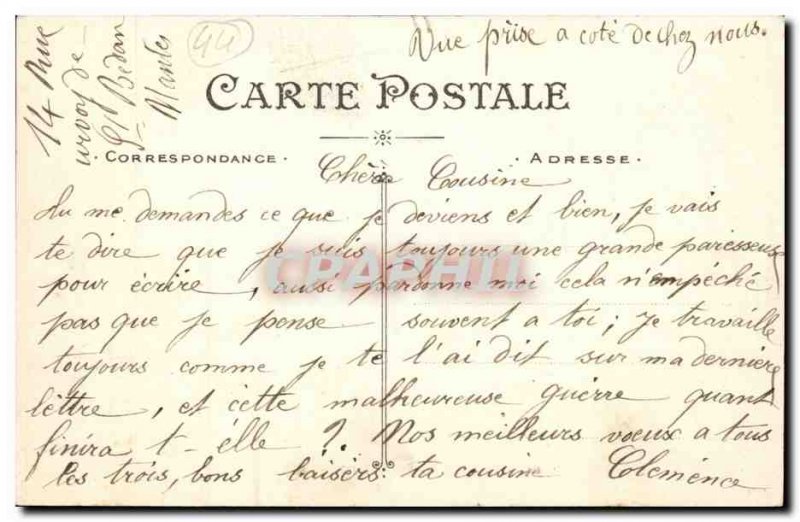 Vue prise a coté de chez nous.
44
14 Rue
urvoy de
St Bedan
Nantes
CARTE POSTALE
CORRESPONDANCE
ADRESSE
Chère Cousine
Tu me demandes ce que je deviens et bien, je vais
te dire que je suis toujours une grande paresseuse
pour écrire, aussi pardonne moi cela n'empéché
pas que je pense souvent a toi; je travaille
toujours comme je te l'ai dit sur ma dernière
léttre, et cette malheureuse guerre quant
finira t-élle ? Nos meilleurs voeux a tous
les trois, bons baisérs ta cousine Clémence
CPARAMA